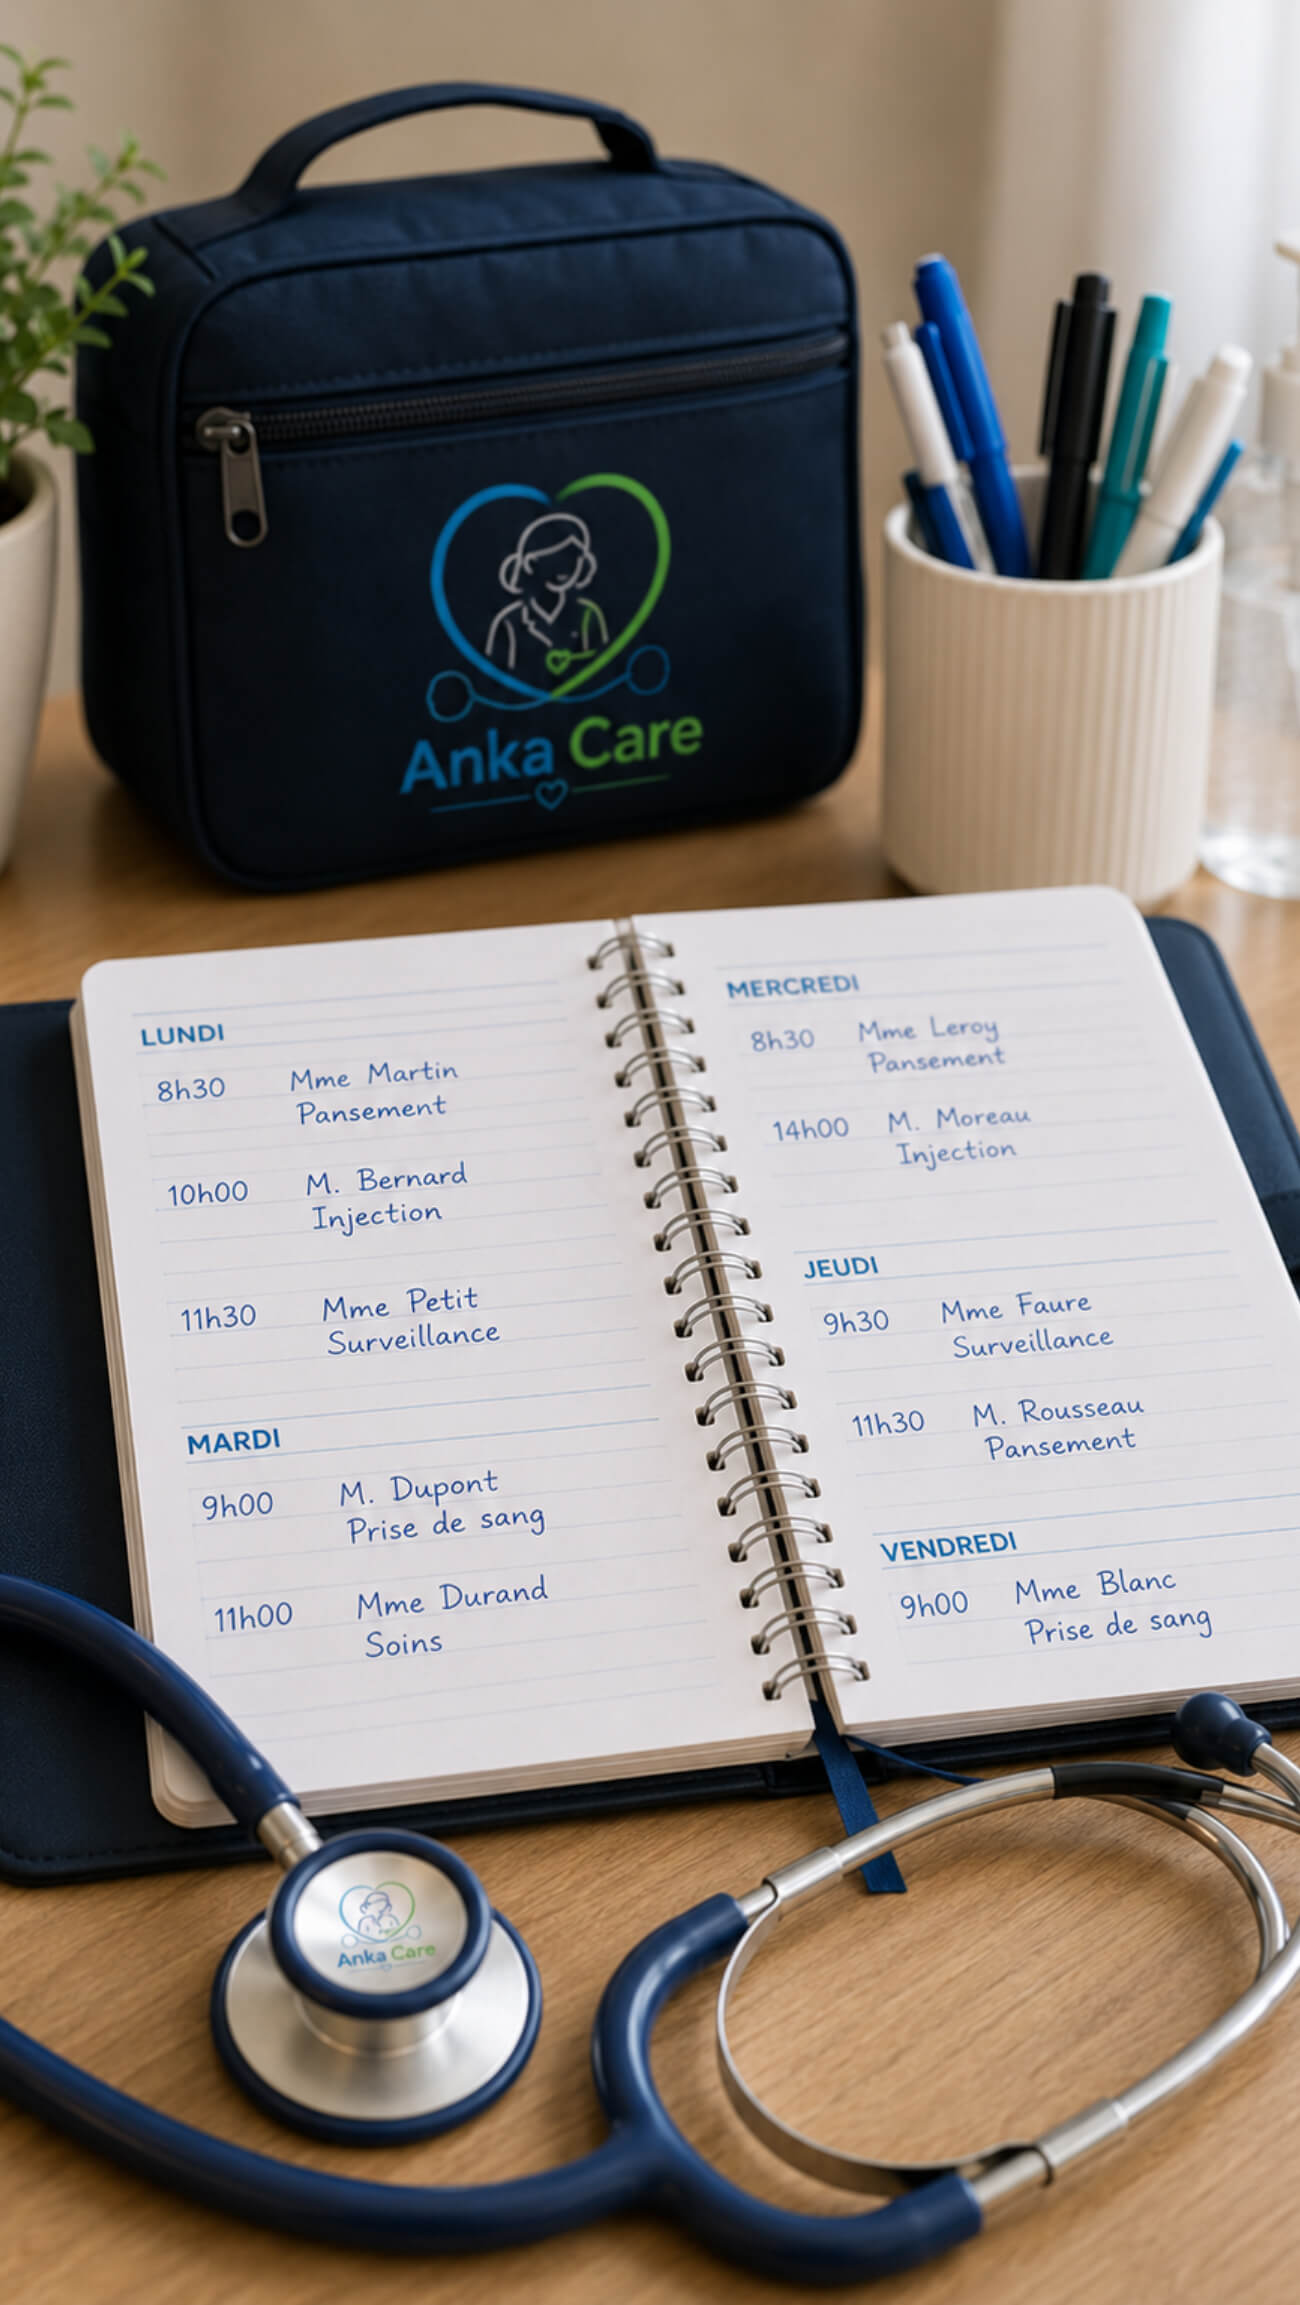 Anka Care
LUNDI
8h30 Mme Martin
Pansement
10h00 M. Bernard
Injection
11h30 Mme Petit
Surveillance
MARDI
9h00 M. Dupont
Prise de sang
11h00 Mme Durand
Soins
MERCREDI
8h30 Mme Leroy
Pansement
14h00 M. Moreau
Injection
JEUDI
9h30 Mme Faure
Surveillance
11h30 M. Rousseau
Pansement
VENDREDI
9h00 Mme Blanc
Prise de sang
Anka Care